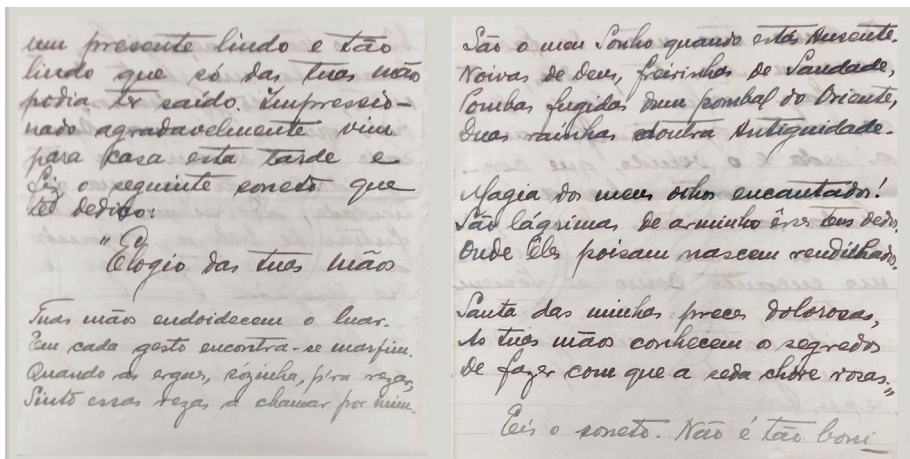 um presente lindo e tão
lindo que só das tuas mão
podia ter saído. Impressio-
nado agradavelmente vim
para casa esta tarde e
fiz o seguinte soneto que
te dedico:
"Elogio das tuas mãos
Tuas mãos endoidecem o luar.
Em cada gesto encontra-se marfim.
Quando as ergues, sózinha, p'ra rezar,
Sinto essas rezas a chamar por mim.
São o meu Sonho quando estás Ausente.
Noivas de Deus, freirinhas de Saudade,
Pombas fugidas dum pombal do Oriente,
Duas rainhas doutra Antiguidade.
Magia dos meus olhos encantados!
São lágrimas de arminho êsses teus dedos,
Onde Êles poisam nascem rendilhados.
Santa das minhas preces dolorosas,
As tuas mãos conhecem os segredos
De fazer com que a seda chore rosas."
Eis o soneto. Não é tão bom